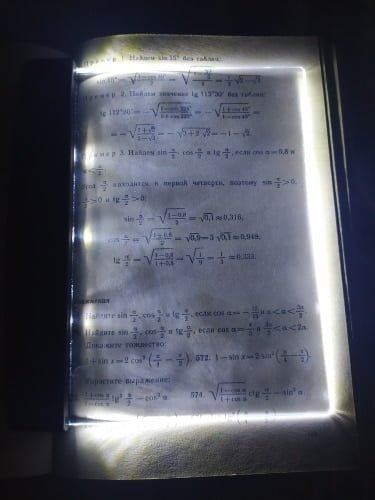 Пример 1. Найдем sin 15° без таблиц.
sin 15° = √((1−cos 30°)/2) = = 1/2 √(2−√3).
Пример 2. Найдем значение tg 112°30′ без таблиц:
tg 112°30′ = −√((1−cos 225°)/(1+cos 225°)) = −√((1+cos 45°)/(1−cos 45°)) =
= −√((2+√2)/(2−√2)) = −√(3+2√2) = −1−√2.
Пример 3. Найдем sin α/2, cos α/2 и tg α/2, если cos α = 0,8 и
α < π/2
Угол α/2 находится в первой четверти, поэтому sin α/2 > 0,
> 0 и tg α/2 > 0:
sin α/2 = √((1−0,8)/2) = √0,1 ≈ 0,316,
cos α/2 = √((1+0,8)/2) = √0,9 = 3√0,1 ≈ 0,949,
tg α/2 = √((1−0,8)/(1+0,8)) = √(1/9) = 1/3 ≈ 0,333.
Найдите sin α/2, cos α/2 и tg α/2, если cos α = − и π < α < 3π/2
Найдите sin α/2, cos α/2 и tg α/2, если cos α = и 3π/2 < α < 2π.
Докажите тождество:
1 + sin x = 2 cos² (π/4 − x/2). 572. 1 − sin x = 2 sin² (π/4 − x/2).
Упростите выражение:
tg² α/2 − cos² α. 574. √((1−cos α)/(1+cos α)) ctg α/2 − sin² α.